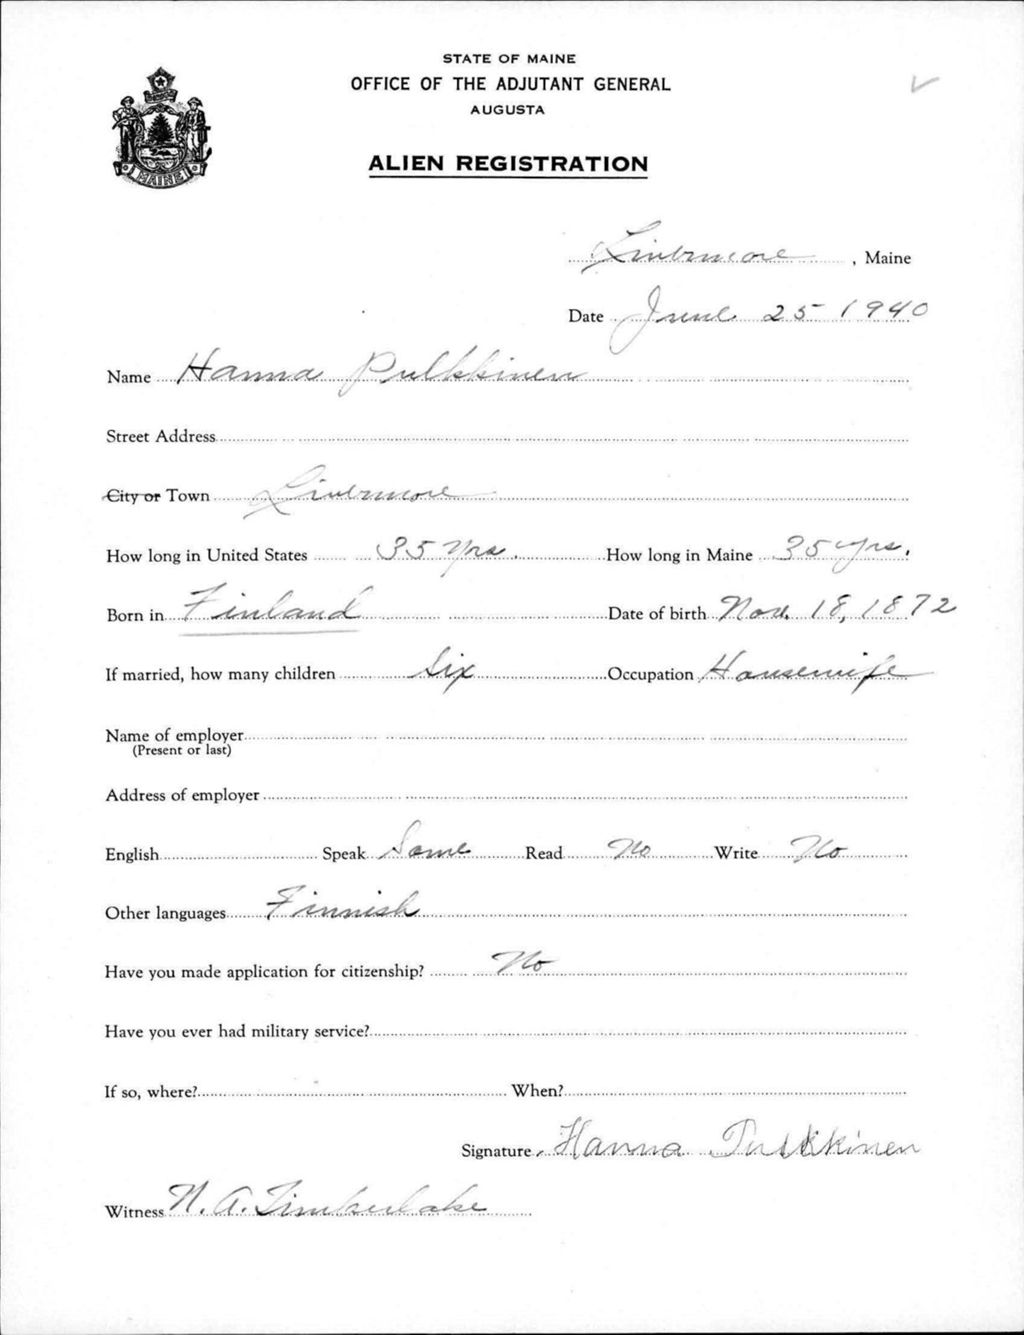 STATE OF MAINE
OFFICE OF THE ADJUTANT GENERAL
AUGUSTA
MAINE
ALIEN REGISTRATION
Livermore, Maine
Date June 25 1940
Name Hanna Pulkkinen
Street Address
City or Town Livermore
How long in United States 35 yrs. How long in Maine 35 yrs.
Born in Finland Date of birth Nov. 18, 1872
If married, how many children Six Occupation Housewife
Name of employer
(Present or last)
Address of employer
English Speak Some Read No Write No
Other languages Finnish
Have you made application for citizenship? No
Have you ever had military service?
If so, where? When?
Signature Hanna Pulkkinen
Witness N. A. Timberlake